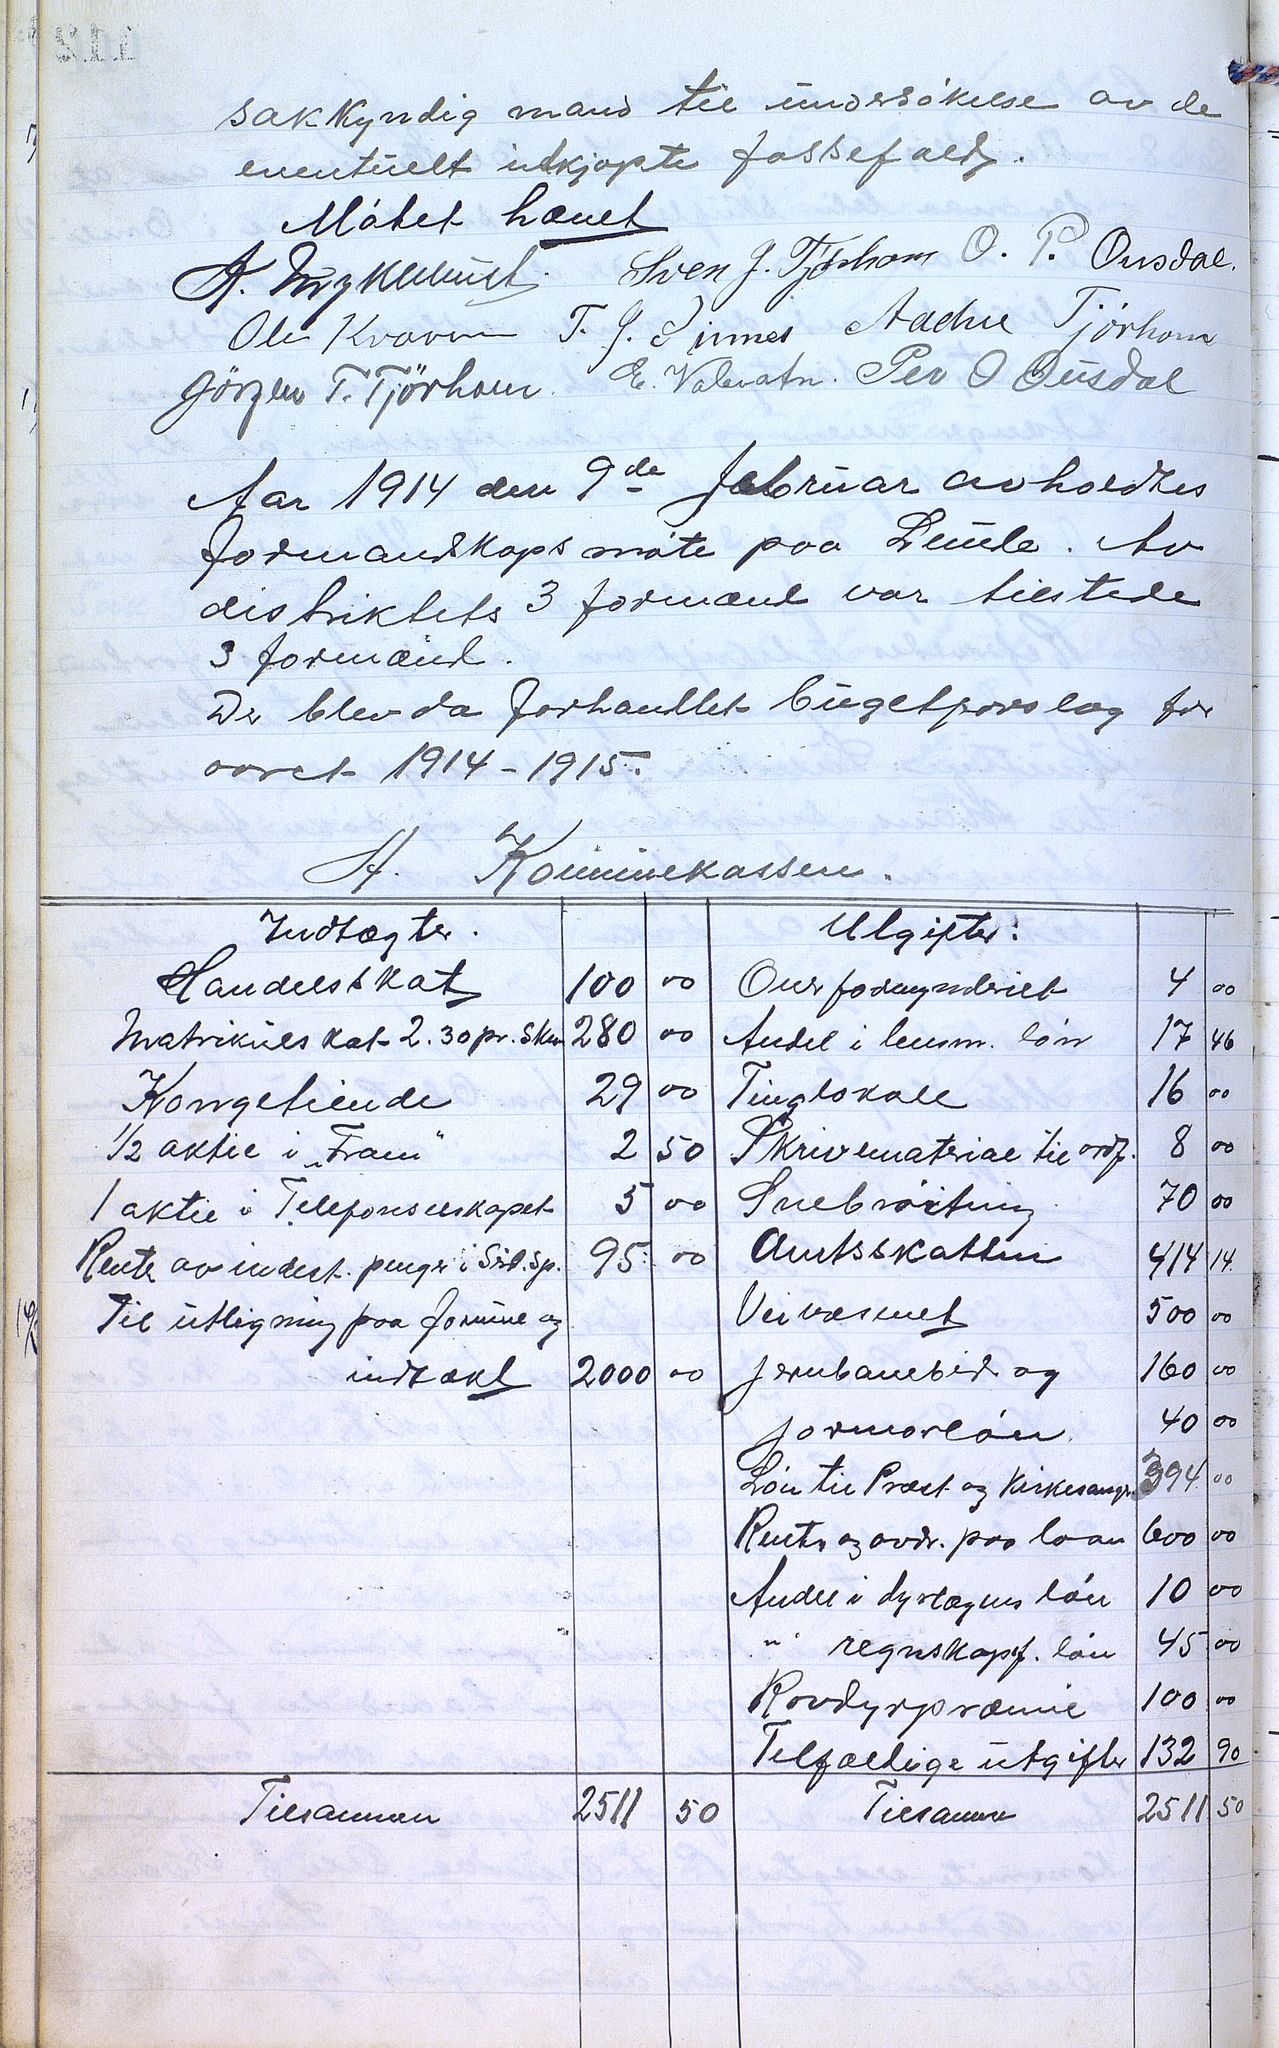 sakkyndig mand til undersökelse av de
eventuelt utkjøpte fossefald.
Mötet hævet
A. Myklebust. Sven J. Tjörhom O. P. Ousdal.
Ole Kvæven T. J. Sinnes Aadne Tjörhom
Görgen T. Tjörhom. E. Valevatn. Per O Ousdal
Aar 1914 den 9de februar avholdtes
formandskapsmöte paa Lunde. Av
distriktets 3 formænd var tilstede
3 formænd.
Der blev da forhandlet bugetforslag for
aaret 1914-1915.
A. Kommunekassen.
Indtægter. Utgifter:
Handelsskat 100 00 Overformynderiet 4 00
Matrikulskat 2.30 pr. Skm 280 00 Andel i lensm. lön 17 46
Kongetiende 29 00 Tinglokale 16 00
1/2 aktie i „Fram" 2 50 Skrivemateriael til ordf. 8 00
1 aktie i Telefonselskapet 5 00 Snebröiting 70 00
Rente av indest. penger i Sird. Sp. 95 00 Amtsskatten 414 14
Til utligning paa formue og Veivæsenet 500 00
indtækt 2000 00 Jernbanebidrag 160 00
Jormorlön 40 00
Lön til Præst og Kirkesanger 394 00
Renter og avdr. paa laan 600 00
Andel i dyrlægens lön 10 00
" regnskapsf. lön 45 00
Rovdyrpræmie 100 00
Tilfældige utgifter 132 90
Tilsammen 2511 50 Tilsammen 2511 50